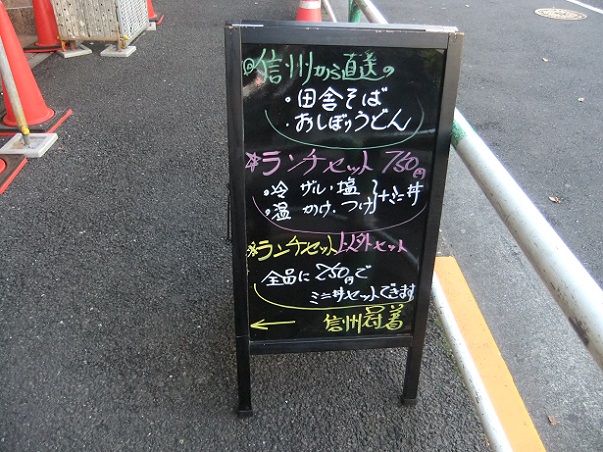 ◎信州から直送の
・田舎そば
・おしぼりうどん
※ランチセット 750円
・冷 ザル・塩
・温 かけ・つけ
}+ミニ丼
※ランチセット以外セット
全品に250円で
ミニ丼セットできます
← 信州